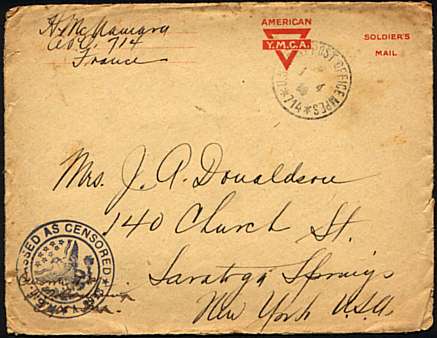 H. McNamara
A.P.O. 714
France
AMERICAN
Y.M.C.A.
SOLDIER'S
MAIL
POST OFFICE MPES * 714 * U.S.
PASSED AS CENSORED
Mrs. J. A. Donaldson
140 Church St.
Saratoga Springs
New York U.S.A.